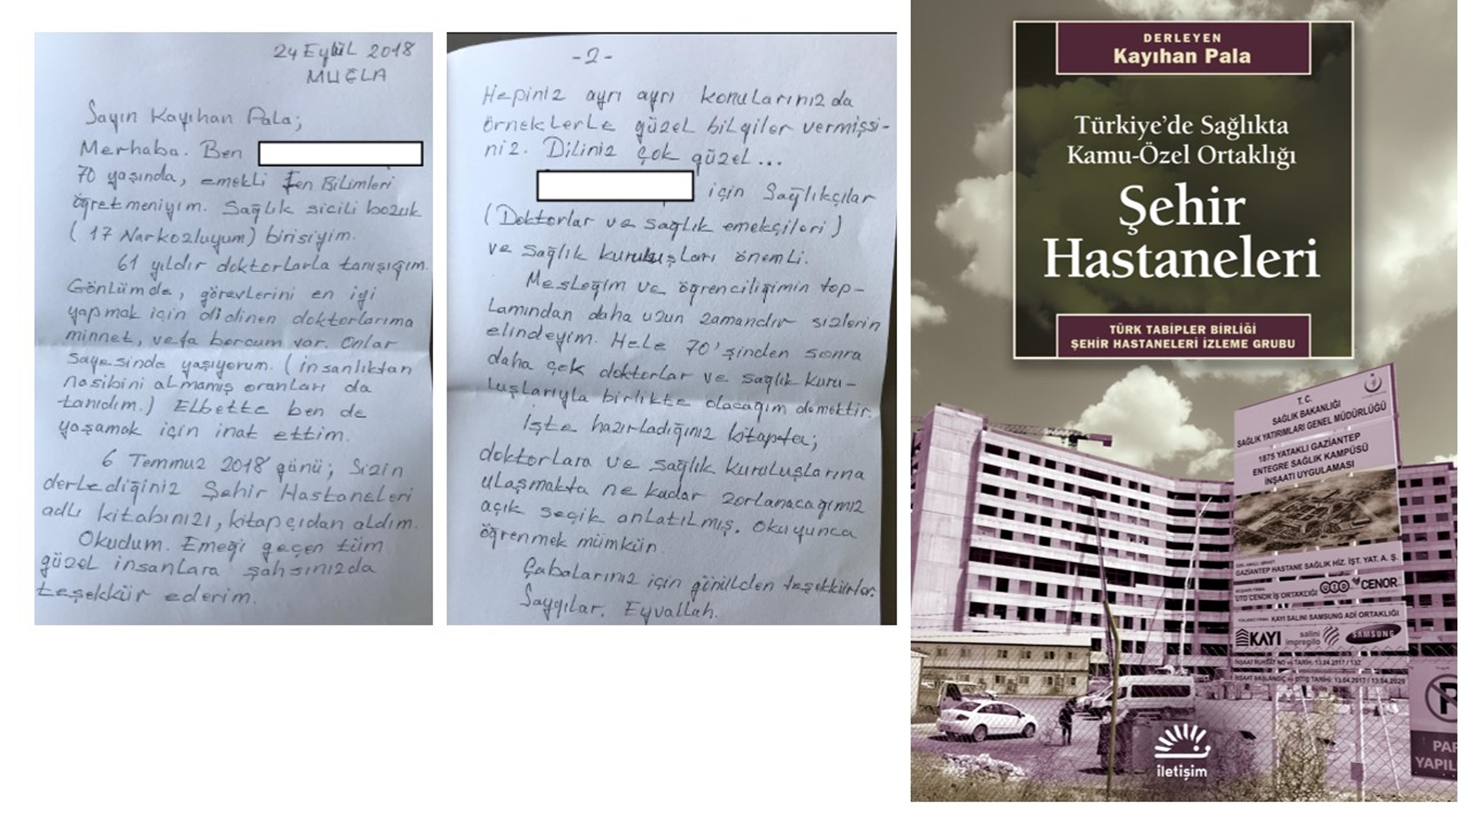 24 Eylül 2018
MUĞLA
Sayın Kayıhan Pala;
Merhaba. Ben
70 yaşında, emekli Fen Bilimleri
öğretmeniyim. Sağlık sicili bozuk
( 17 Narkozluyum) birisiyim.
61 yıldır doktorlarla tanışığım.
Gönlümde, görevlerini en iyi
yapmak için didinen doktorlarıma
minnet, vefa borcum var. Onlar
sayesinde yaşıyorum. (insanlıktan
nasibini almamış oranları da
tanıdım.) Elbette ben de
yaşamak için inat ettim.
6 Temmuz 2018 günü; Sizin
derlediğiniz Şehir Hastaneleri
adlı kitabınızı, kitapçıdan aldım.
Okudum. Emeği geçen tüm
güzel insanlara şahsınızda
teşekkür ederim.
-2-
Hepiniz ayrı ayrı konularınızda
örneklerle güzel bilgiler vermişsi-
niz. Diliniz çok güzel...
için Sağlıkçılar
(Doktorlar ve sağlık emekçileri)
ve sağlık kuruluşları önemli.
Mesleğim ve öğrenciliğimin top-
lamından daha uzun zamandır sizlerin
elindeyim. Hele 70'şinden sonra
daha çok doktorlar ve sağlık kuru-
luşlarıyla birlikte olacağım demektir.
İşte hazırladığınız kitapta;
doktorlara ve sağlık kuruluşlarına
ulaşmakta ne kadar zorlanacağımız
açık seçik anlatılmış. Okuyunca
öğrenmek mümkün.
Çabalarınız için gönülden teşekkürler.
Saygılar. Eyvallah.
DERLEYEN
Kayıhan Pala
Türkiye'de Sağlıkta
Kamu-Özel Ortaklığı
Şehir
Hastaneleri
TÜRK TABİPLER BİRLİĞİ
ŞEHİR HASTANELERİ İZLEME GRUBU
T. C.
SAĞLIK BAKANLIĞI
SAĞLIK YATIRIMLARI GENEL MÜDÜRLÜĞÜ
1875 YATAKLI GAZİANTEP
ENTEGRE SAĞLIK KAMPÜSÜ
İNŞAATI UYGULAMASI
GAZİANTEP HASTANE SAĞLIK HİZ. İŞT. YAT. A. Ş.
UTD CENOR İŞ ORTAKLIĞI UTD CENOR
KAYI SALINI SAMSUNG ADİ ORTAKLIĞI
KAYI salini impregilo SAMSUNG
P
PAR
YAPIL
iletişim